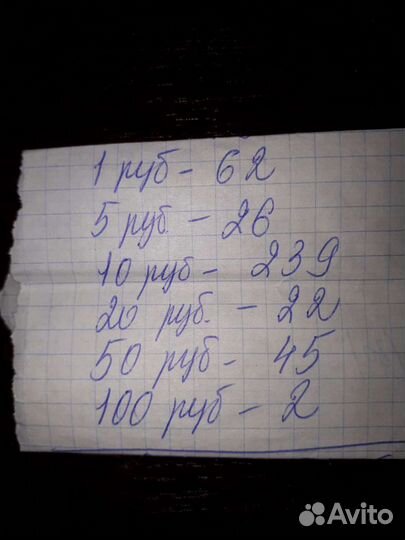 1 руб - 62
5 руб. - 26
10 руб - 239
20 руб. - 22
50 руб - 45
100 руб - 2
Avito